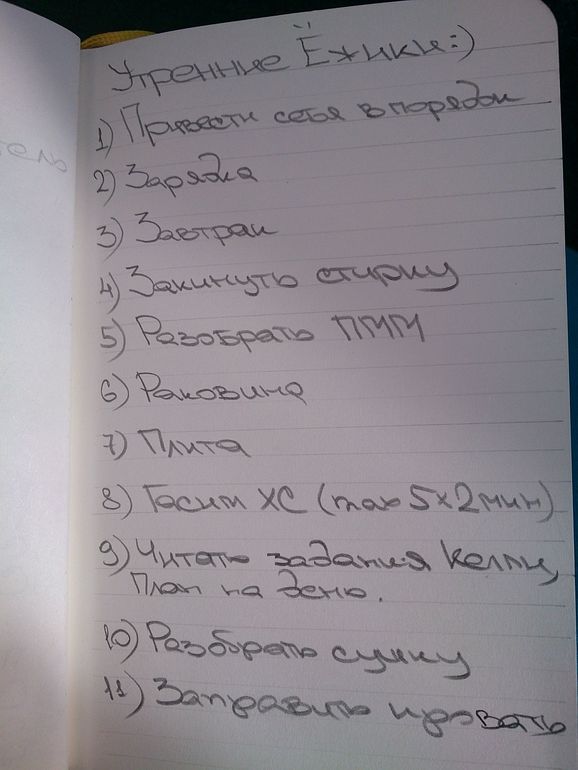 Утренние Ёжики:)
1) Привести себя в порядок
2) Зарядка
3) Завтрак
4) Закинуть стирку
5) Разобрать ПММ
6) Раковина
7) Плита
8) Гасим ХС (max 5x2мин)
9) Читать задания Келли,
План на день.
10) Разобрать сумку
11) Заправить кровать